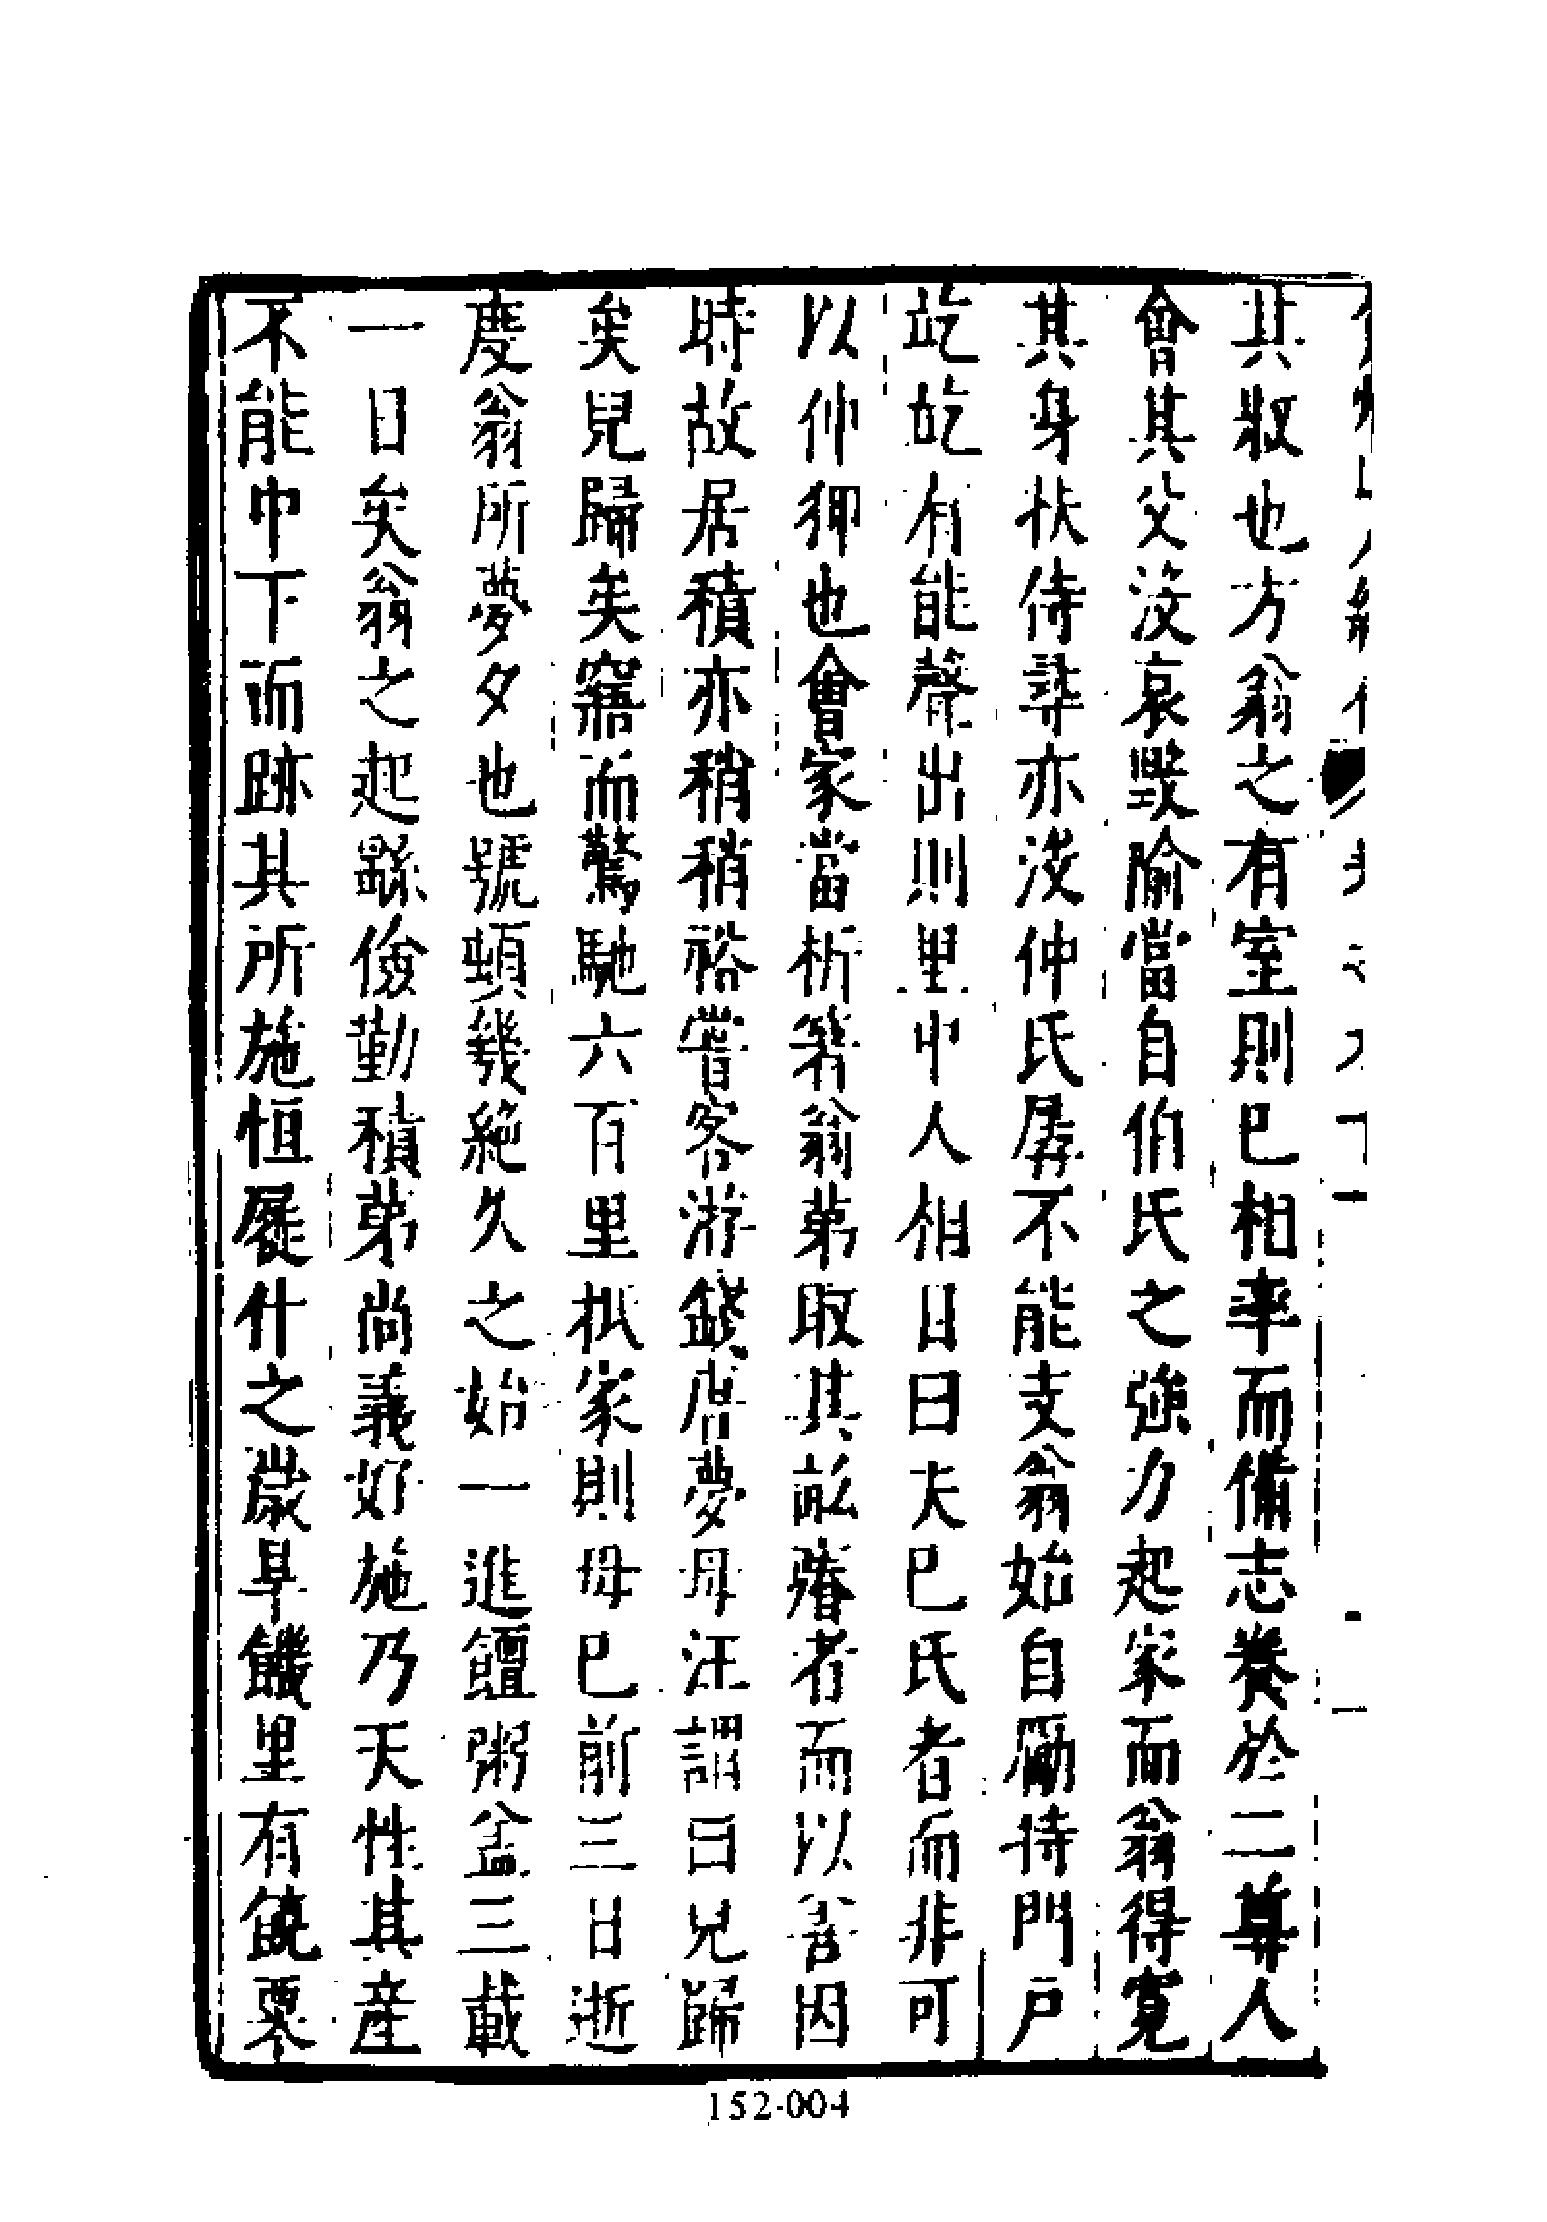 其収也方翁之有室則巳相率而備志養於二尊人
會其父沒哀毀踰當自伯氏之強力起家而翁得寛
其身扶侍尋亦沒仲氏孱不能支翁始自勵持門戶
訖訖有能聲出則里中人相目曰夫巳氏者而非可
以仲狎也會家當析箸翁第取其畝瘠者而以善因
時故居積亦稍稍裕嘗客游錢唐夢母汪謂曰兒歸
矣兒歸矣寤而驚馳六百里抵家則母巳前三日逝
慶翁所夢夕也號頓幾絶久之始一進饘粥盆三載
一日矣翁之起繇儉勤積第尚義好施乃天性其産
不能中下而跡其所施恒屣什之歲旱饑里有饒粟
152-004